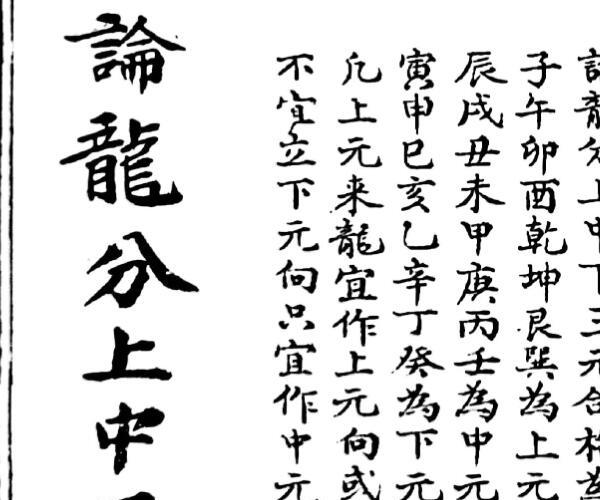 龍分上中下三元合格
子午卯酉乾坤艮巽為上元
辰戌丑未甲庚丙壬為中元
寅申巳亥乙辛丁癸為下元
凡上元来龍宜作上元向或
不宜立下元向只宜作中元
論龍分上中